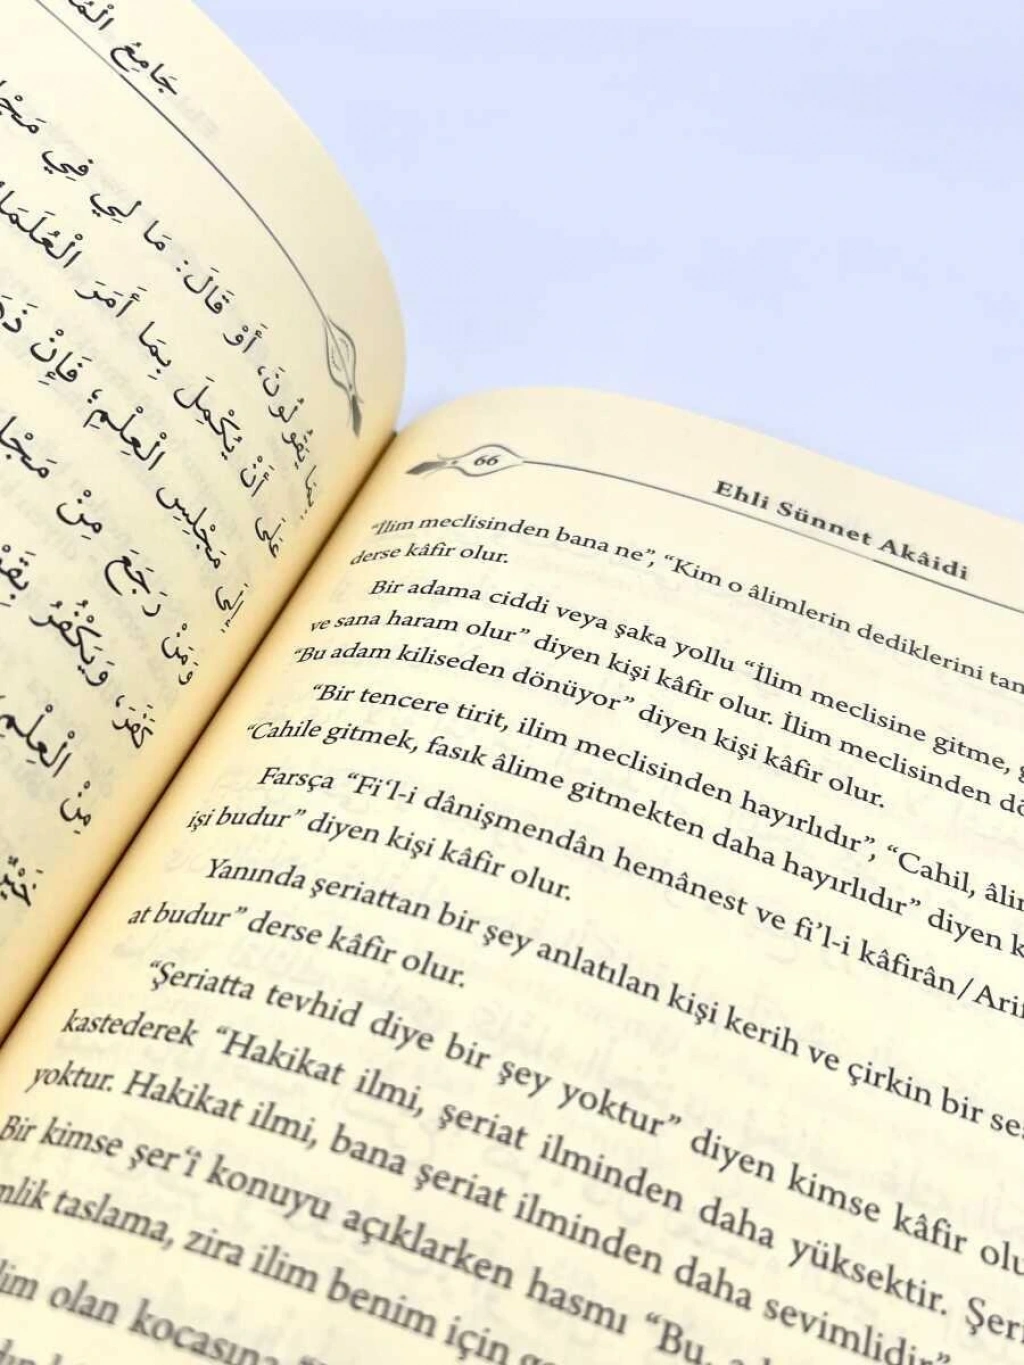 جَامِعُ
مَا لِي فِي
يَقُولُونَ، أَوْ قَالَ:
عَلَى أَنْ يُكْمِلَ بِمَا أَمَرَ الْعُلَمَا
إِلَى مَجْلِسِ الْعِلْمِ؛ فَإِنْ
وَمَنْ رَجَعَ مِنْ
كَفَرَ، وَيَكْفُرُ
مِنْ الْعِلْمِ
خَيْرٌ
66 Ehli Sünnet Akâidi
“İlim meclisinden bana ne”, “Kim o âlimlerin dediklerini
derse kâfir olur.
Bir adama ciddi veya şaka yollu “İlim meclisine gitme,
ve sana haram olur” diyen kişi kâfir olur. İlim meclisinden
“Bu adam kiliseden dönüyor” diyen kişi kâfir olur.
“Bir tencere tirit, ilim meclisinden hayırlıdır”, “Cahil,
“Cahile gitmek, fasık âlime gitmekten daha hayırlıdır” diyen
Farsça “Fi‘l-i dânişmendân hemânest ve fi’l-i kâfirân/
işi budur” diyen kişi kâfir olur.
Yanında şeriattan bir şey anlatılan kişi kerih ve çirkin bir
at budur” derse kâfir olur.
“Şeriatta tevhid diye bir şey yoktur” diyen kimse kâfir
kastederek “Hakikat ilmi, şeriat ilminden daha yüksektir.
yoktur. Hakikat ilmi, bana şeriat ilminden daha sevimlidir”
Bir kimse şer‘î konuyu açıklarken hasmı “Bu,
mlik taslama, zira ilim benim için
olan kocasına